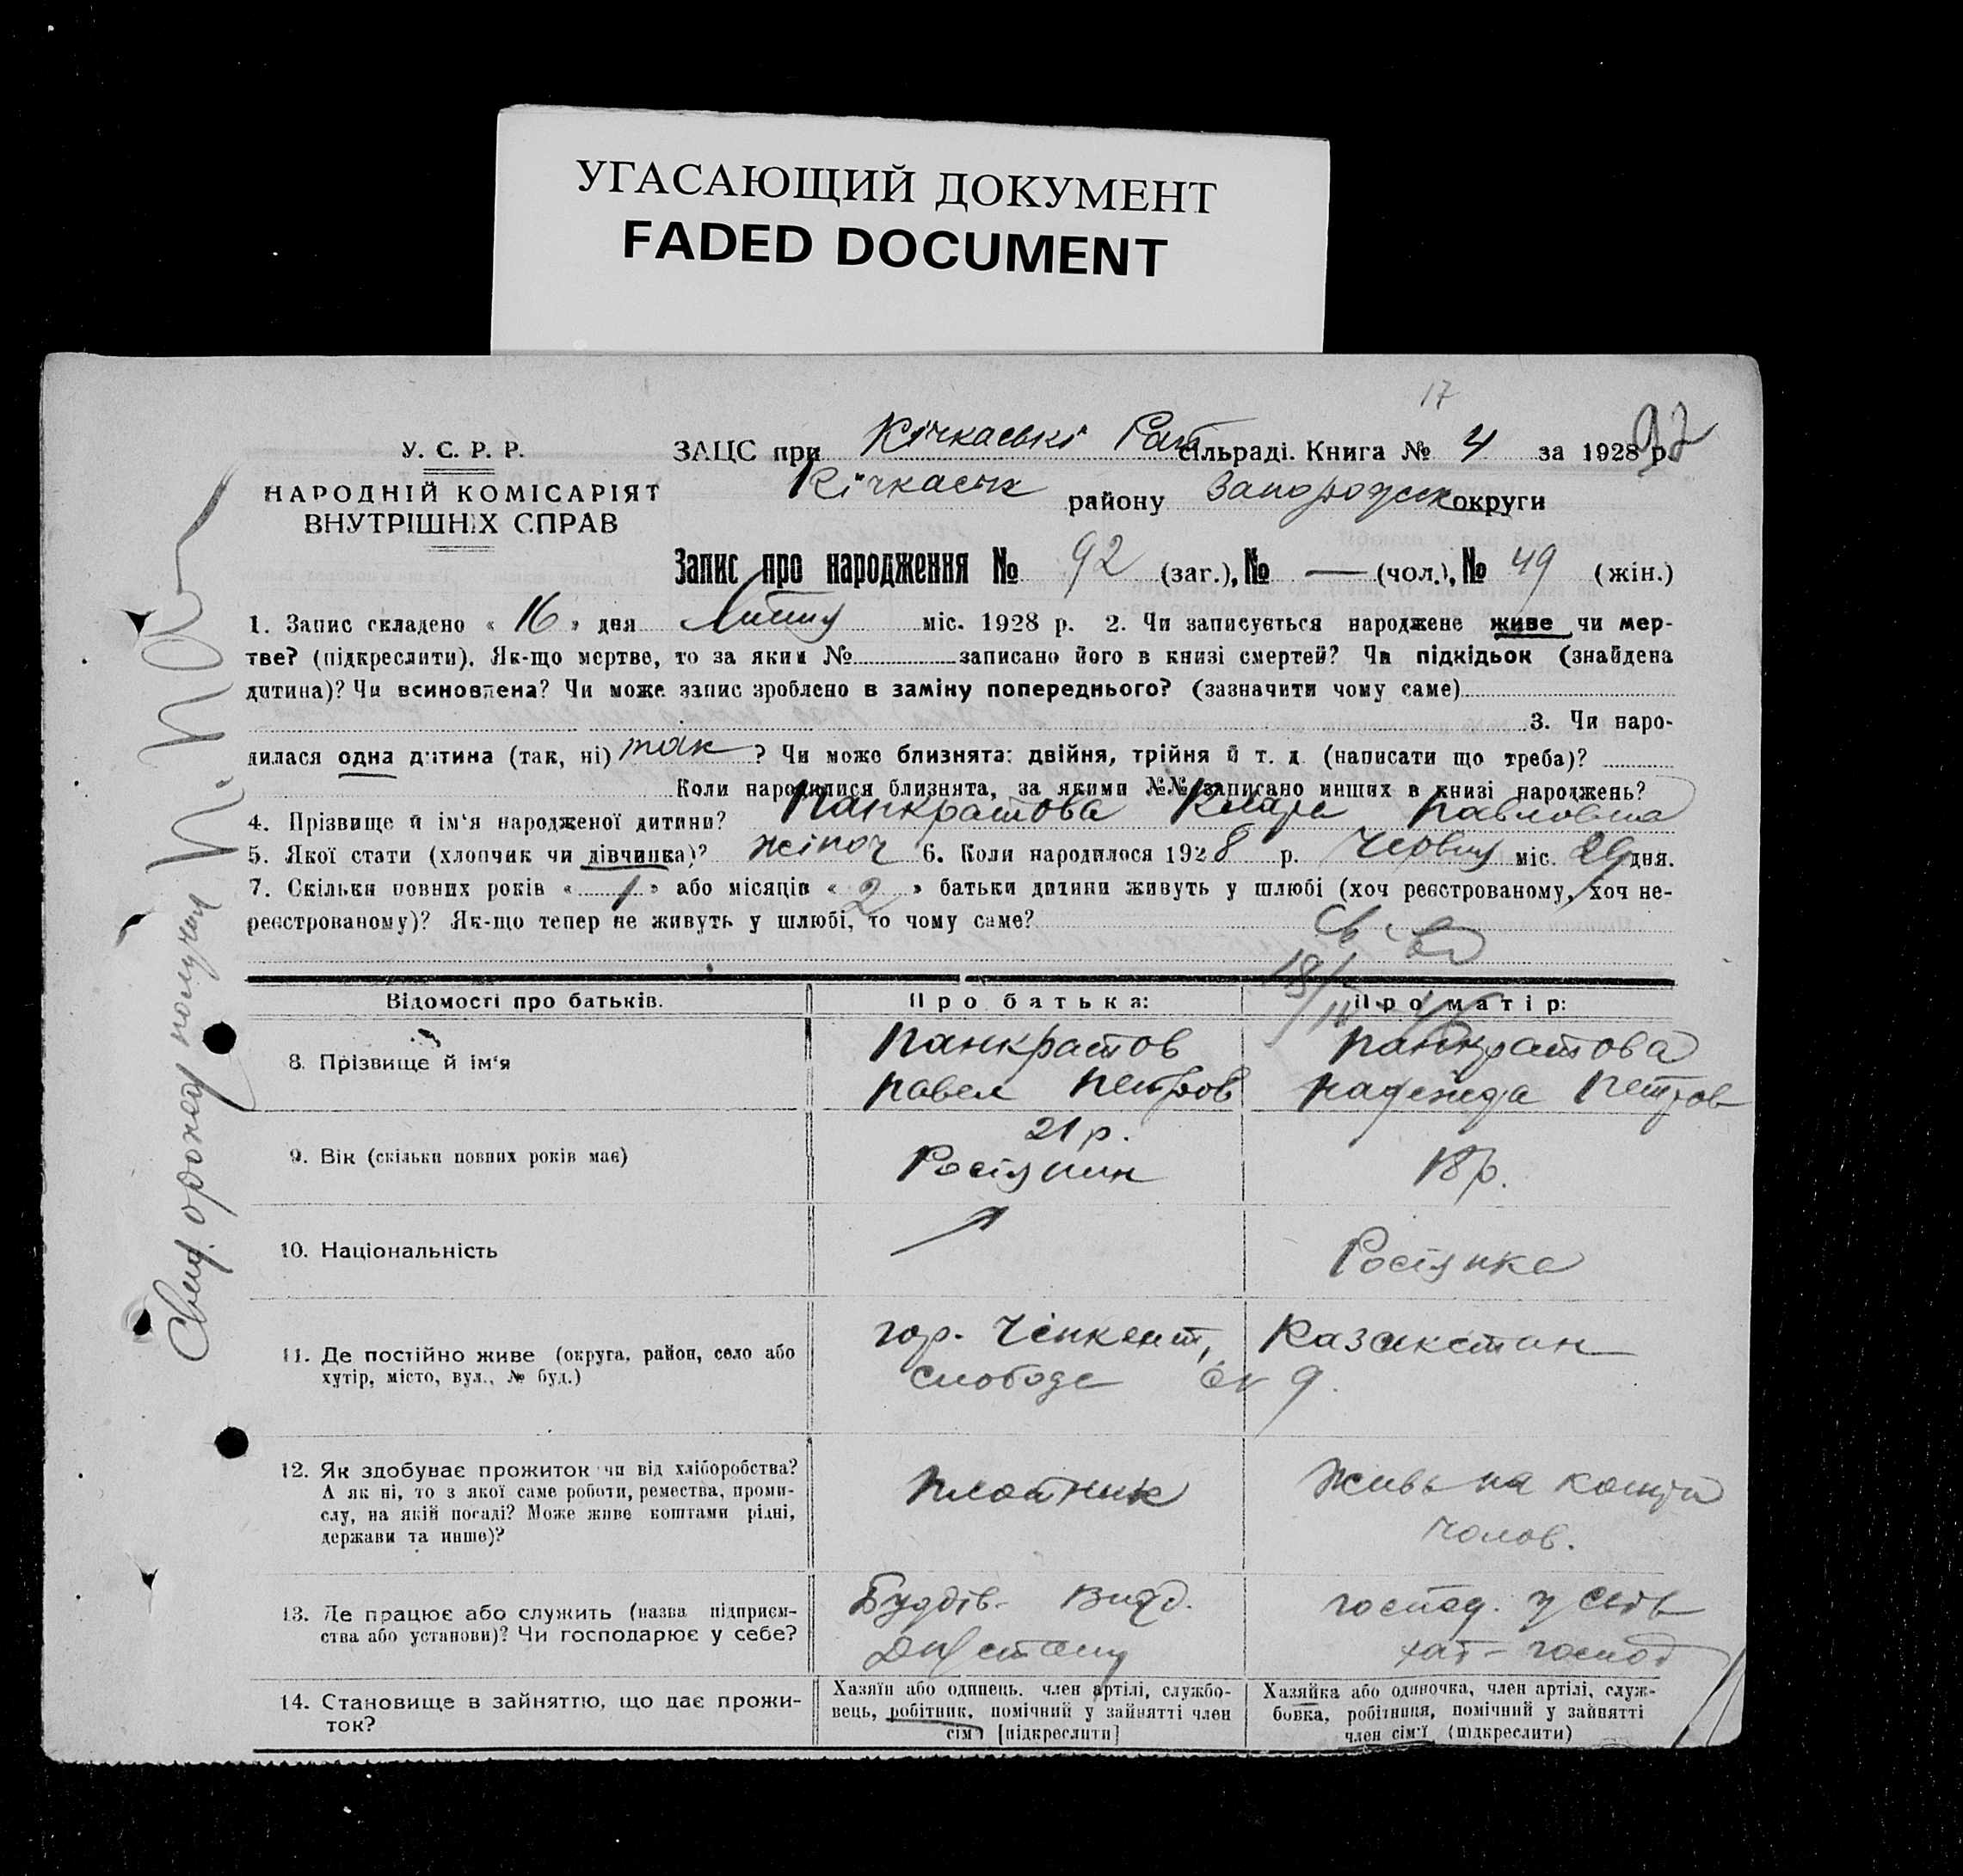 УГАСАЮЩИЙ ДОКУМЕНТ
FADED DOCUMENT
17
92
У. С. Р. Р.
НАРОДНІЙ КОМІСАРІЯТ
ВНУТРІШНІХ СПРАВ
ЗАЦС при Кічкаські Рай сільраді. Книга № 4 за 1928 р.
Кічкаськ району Запорожск округи
Запис про народження № 92 (заг.), № — (чол.), № 49 (жін.)
1. Запис складено « 16 » дня Липня міс. 1928 р. 2. Чи записується народжене живе чи мер-
тве? (підкреслити). Як-що мертве, то за яким № записано його в книзі смертей? Чи підкідьок (знайдена
дитина)? Чи всиновлена? Чи може запис зроблено в заміну попереднього? (зазначити чому саме)
3. Чи наро-
дилася одна дитина (так, ні) так ? Чи може близнята: двійня, трійня й т. д. (написати що треба)?
Коли народилися близнята, за якими №№ записано инших в книзі народжень?
4. Прізвище й ім'я народженої дитини? Панкратова Клара Павловна
5. Якої стати (хлопчик чи дівчинка)? жіноч 6. Коли народилося 1928 р. Червня міс. 29 дня.
7. Скільки повних років « 1 » або місяців « 2 » батьки дитини живуть у шлюбі (хоч реєстрованому, хоч не-
реєстрованому)? Як-що тепер не живуть у шлюбі, то чому саме?
Відомості про батьків.
Про батька:
Про матір:
8. Прізвище й ім'я
Панкратов
Павел Петров
Панкратова
Надежда Петров
9. Вік (скільки повних років має)
21 р.
Росіянин
18 р.
10. Національність
Росіянка
11. Де постійно живе (округа, район, село або
хутір, місто, вул., № буд.)
гор. Чімкент, Казакстан
слобода 9.
12. Як здобуває прожиток чи від хліборобства?
А як ні, то з якої саме роботи, ремества, проми-
слу, на якій посаді? Може живе коштами рідні,
держави та инше)?
Плотник
Живе на кошти
чолов.
13. Де працює або служить (назва підприєм-
ства або установи)? Чи господарює у себе?
Будів. Видд.
Дніпрстану
господ. у своїв
хат- господ
14. Становище в зайняттю, що дає прожи-
ток?
Хазяїн або одинець, член артілі, службо-
вець, робітник, помічний у зайнятті член
сім'ї [підкреслити]
Хазяйка або одиночка, член артілі, служ-
бовка, робітниця, помічний у зайнятті
член сім'ї (підкреслити)